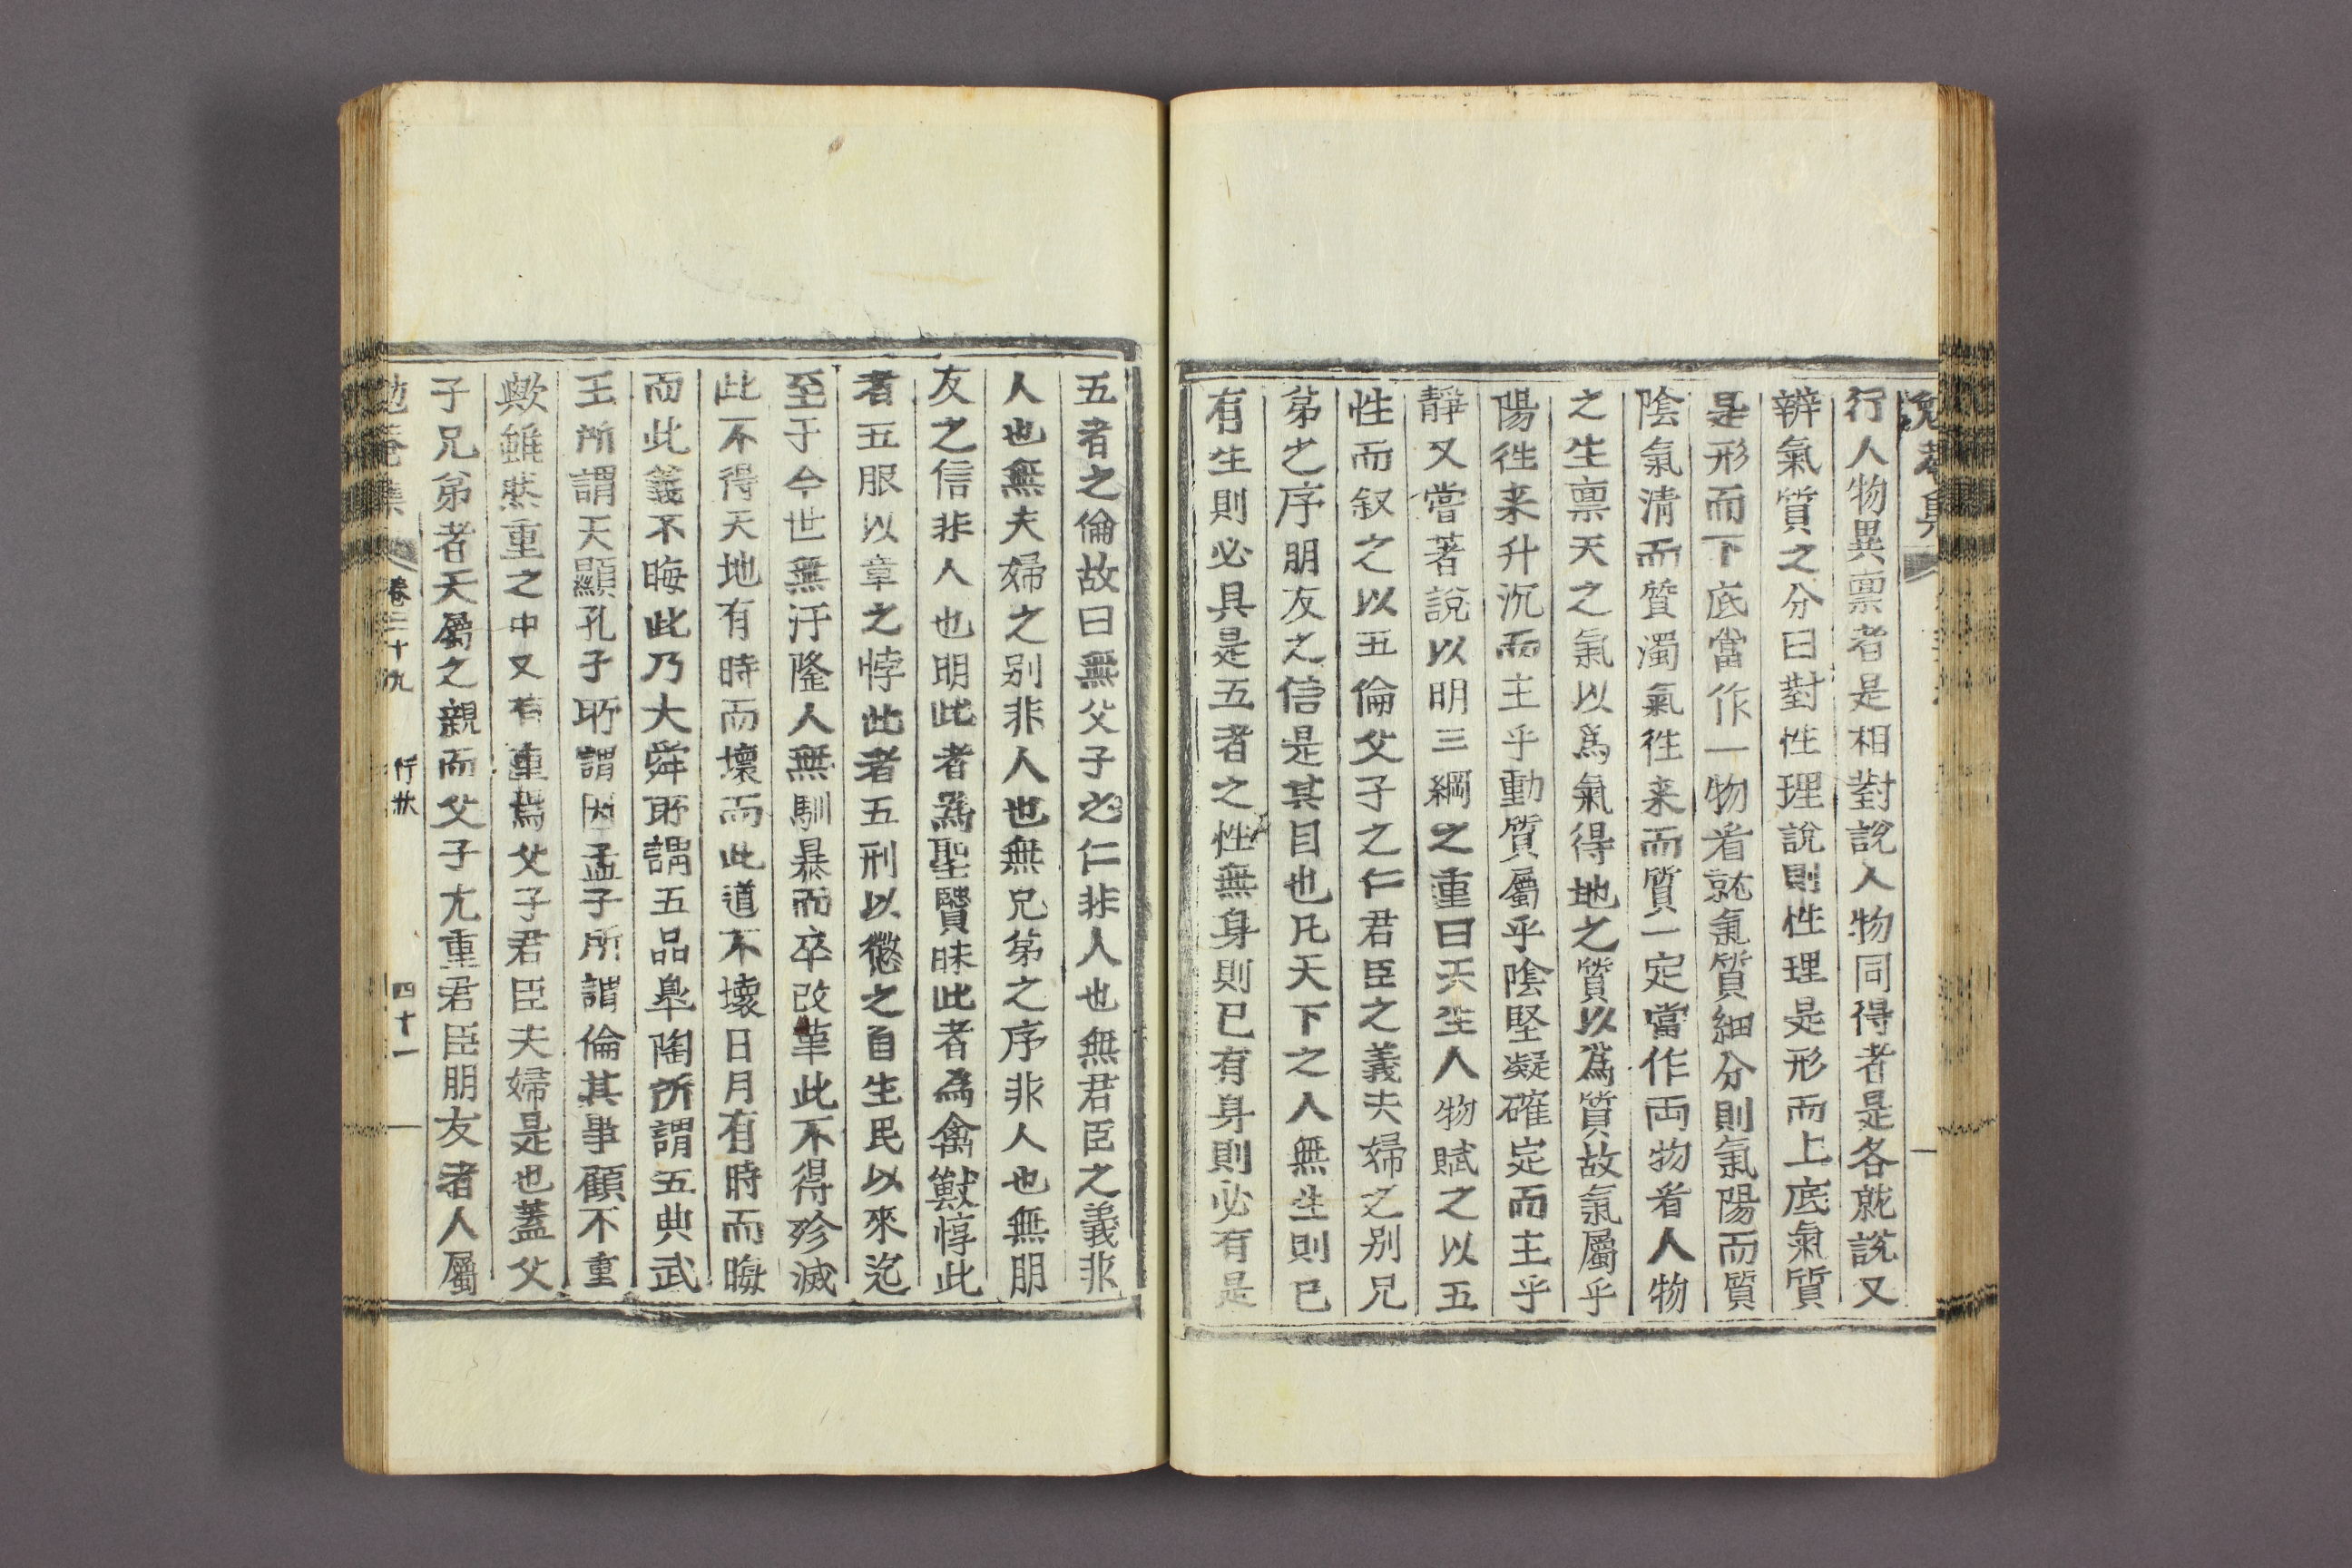 行人物異禀者是相對說人物同得者是各就說又
辨氣質之分曰對性理說則性理是形而上底氣質
是形而下底當作一物看就氣質細分則氣陽而質
陰氣淸而質濁氣徃来而質一定當作両物看人物
之生禀天之氣以爲氣得地之質以爲質故氣屬乎
陽徃来升沉而主乎動質屬乎陰堅凝確定而主乎
靜又嘗著說以明三綱之重曰天生人物賦之以五
性而叙之以五倫父子之仁君臣之義夫婦之别兄
弟之序朋友之信是其目也凡天下之人無生則已
有生則必具是五者之性無身則已有身則必有是
五者之倫故曰無父子之仁非人也無君臣之義非
人也無夫婦之别非人也無兄弟之序非人也無朋
友之信非人也明此者為聖賢昧此者為禽獸惇此
者五服以章之悖此者五刑以懲之自生民以來迄
至于今世無汙隆人無馴暴而卒改革此不得殄滅
此不得天地有時而壞而此道不壞日月有時而晦
而此義不晦此乃大舜所謂五品臯陶所謂五典武
王所謂天顯孔子所謂因孟子所謂倫其事顧不重
歟雖然重之中又有重焉父子君臣夫婦是也蓋父
子兄弟者天屬之親而父子尤重君臣朋友者人屬
勉菴集 卷三十九 行狀 四十一